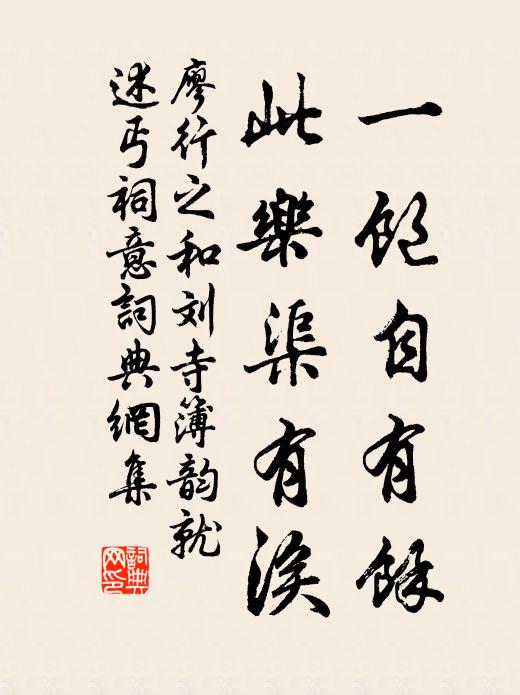 一飽自有餘
此樂渠有涘
廖行之和刘寺簿韵就
述丐祠意詞典網集
詞典網印